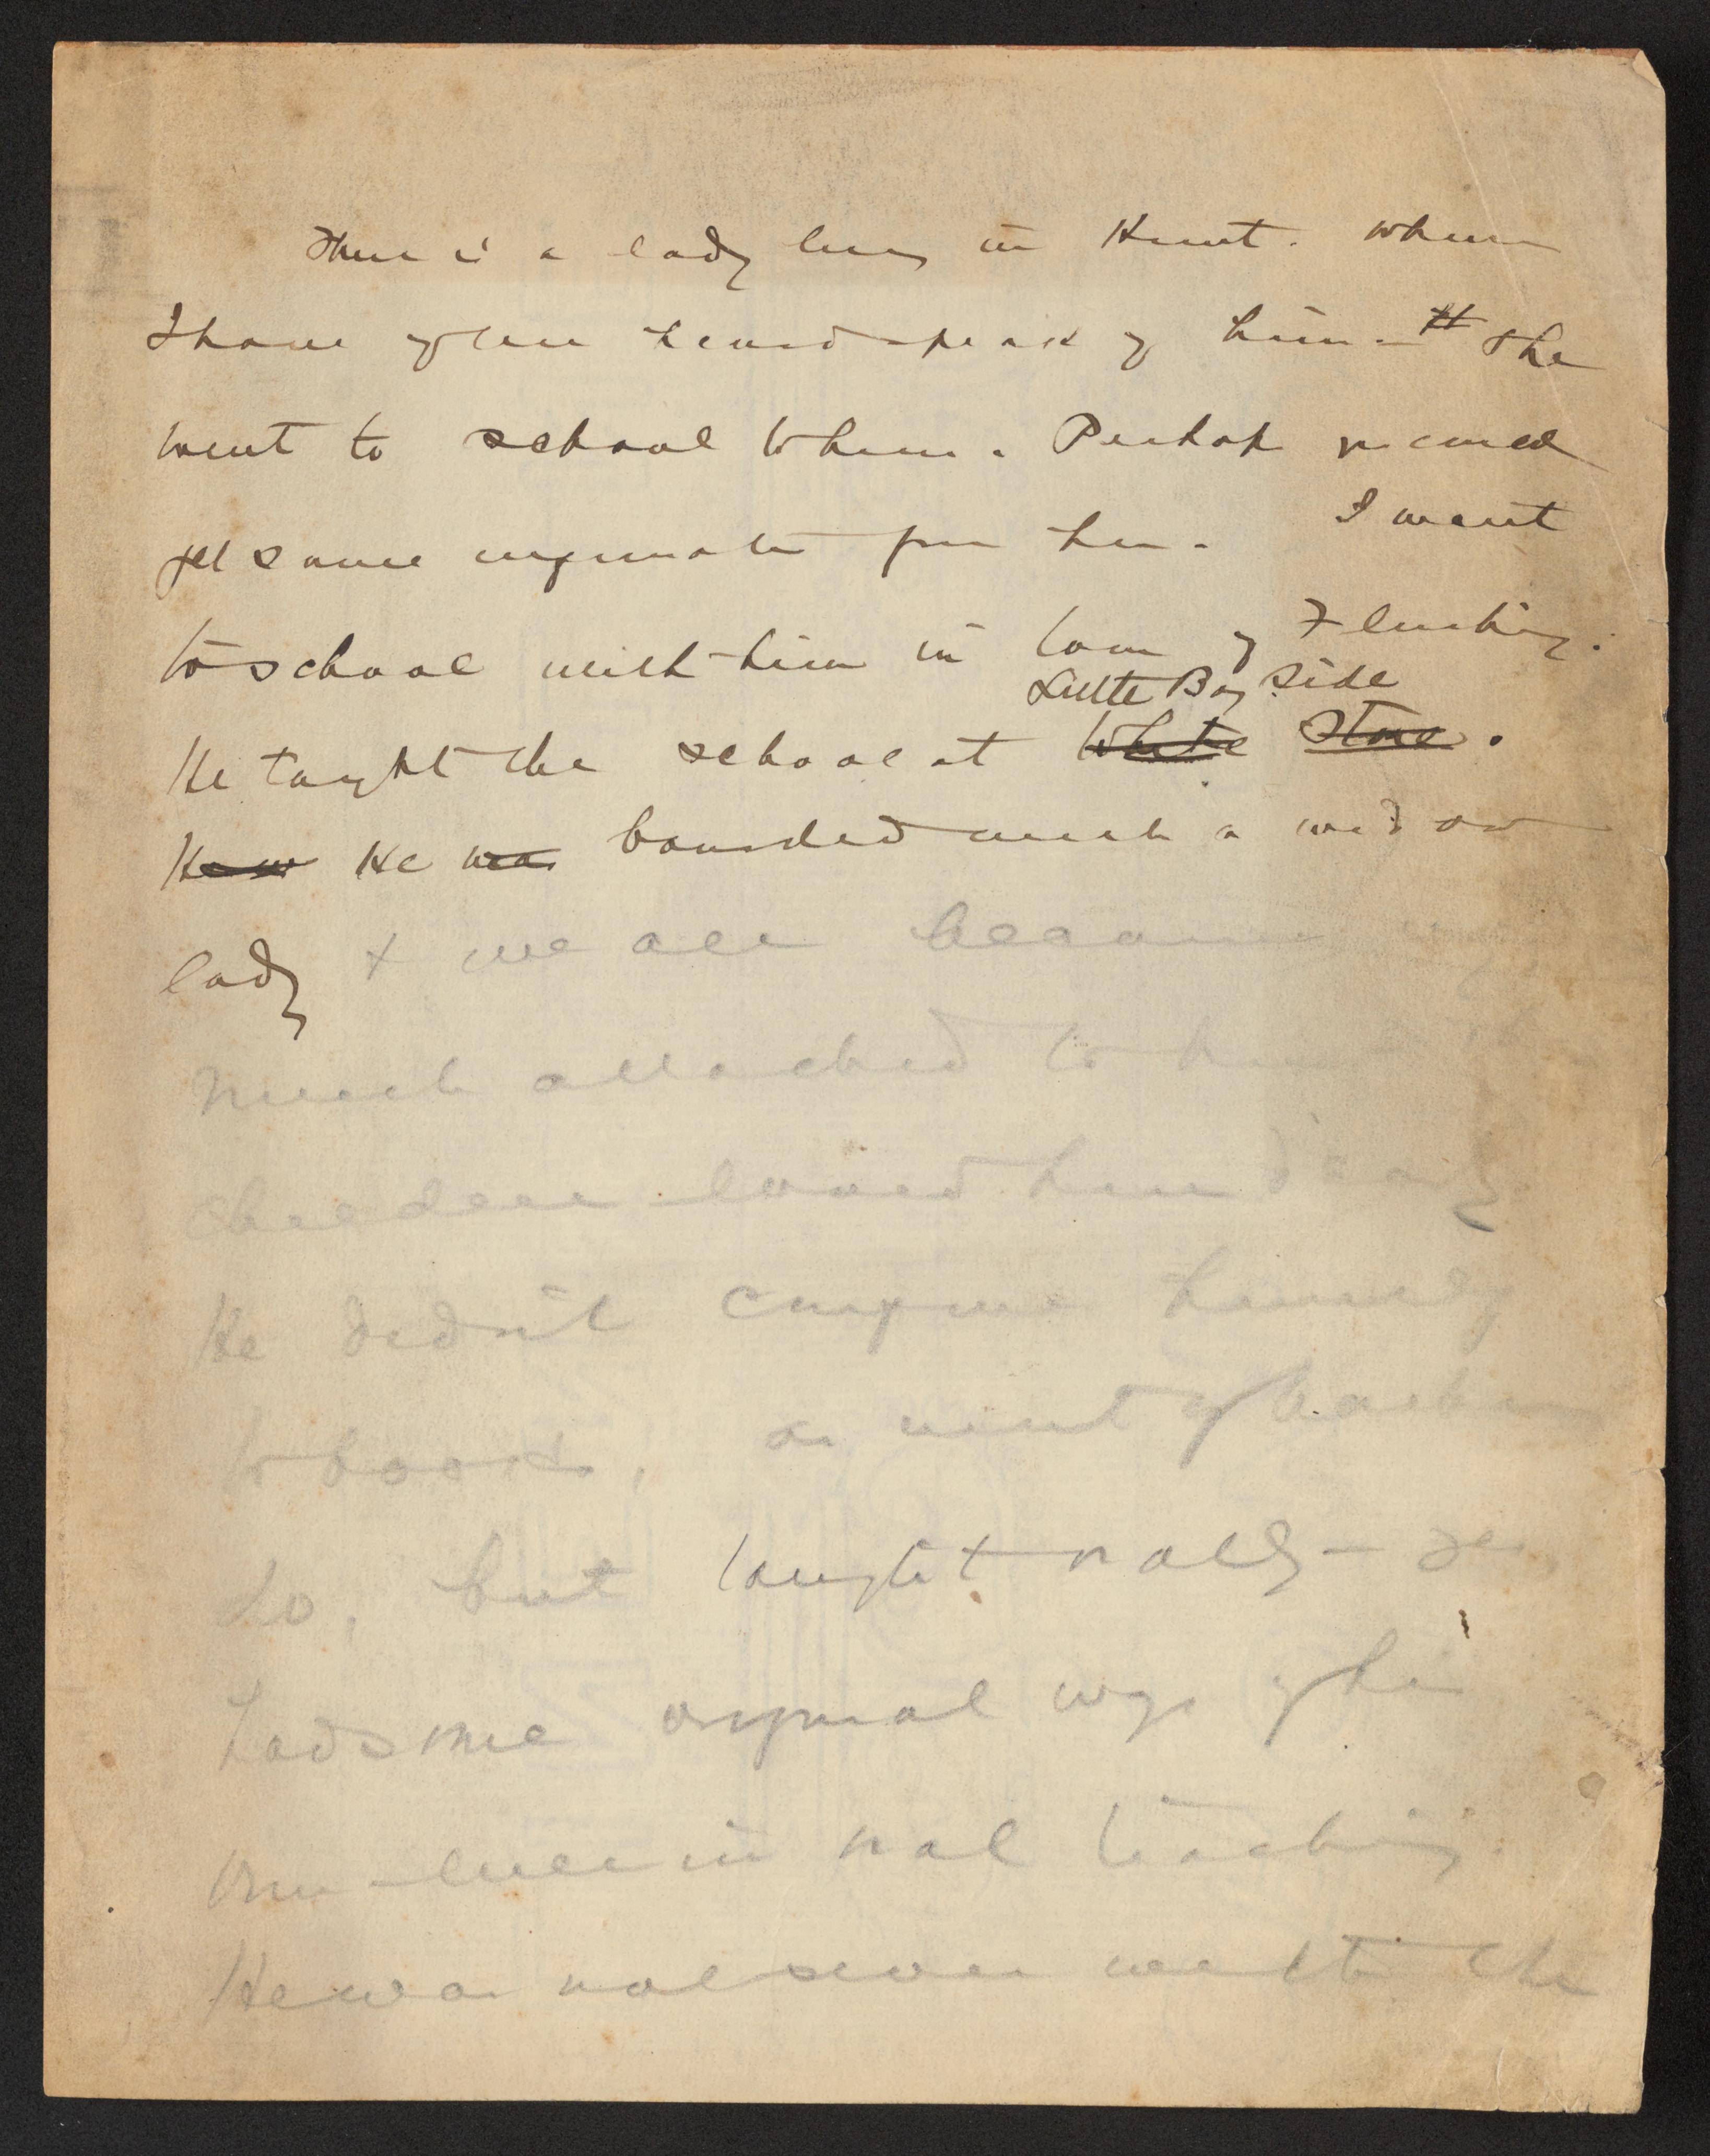 There is a lady living in Hunt. whom
I have often heard speak of him - H She
went to school to him. Perhaps you could
get some information from her. I went
to school with him in town of Flushing.
Little Bay Side
He taught the school at White Stone.
He w He was boarded with a widow
lady & we all became
much attached to him
children loved him dearly
He didn't confine himself
to books, as most of teachers
do, but taught orally - yes
had some original ways of his
own - even in oral teaching
He was not severe with the